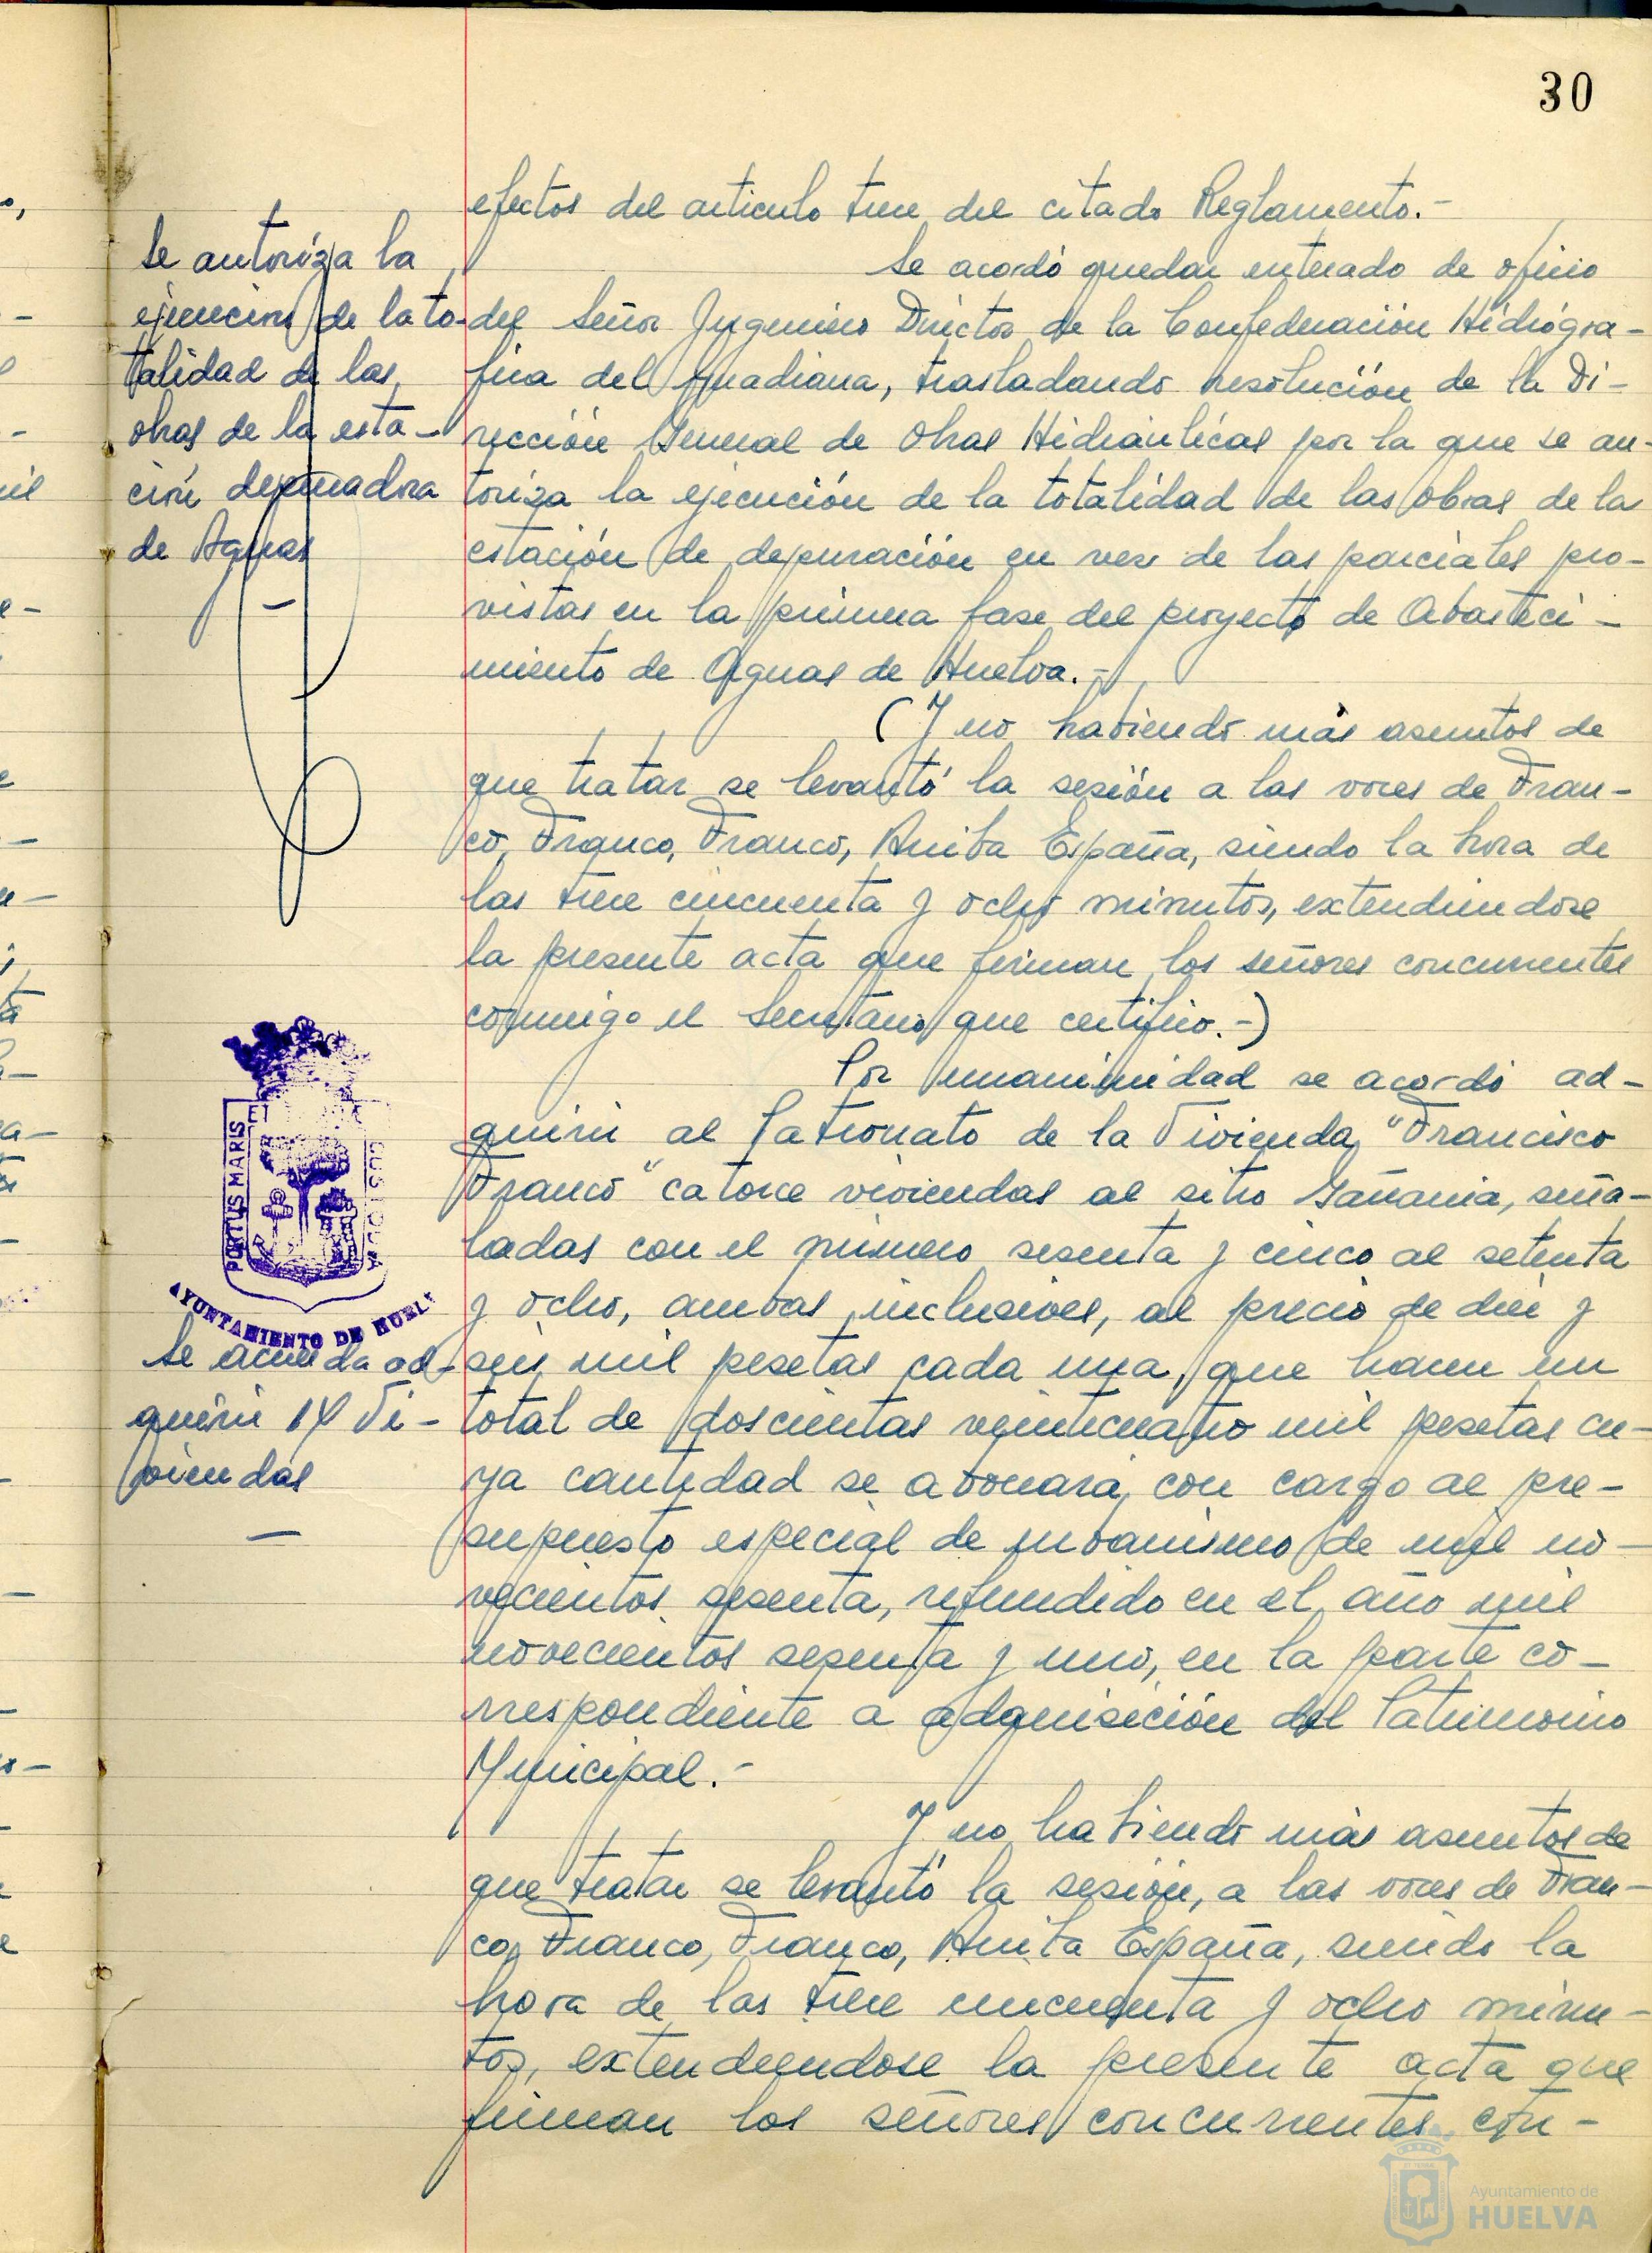 30
efectos del articulo trece del citado Reglamento.-
Se autoriza la
ejecucion de la to-
talidad de las
obras de la esta-
ción depuradora
de Aguas
Se acordó quedar enterado de oficio
del Señor Yngeniero Director de la Confederación Hidrógra-
fica del Guadiana, trasladando resolución de la Di-
rección General de Obras Hidráulicas por la que se au-
toriza la ejecución de la totalidad de las obras de la
estación de depuración en vez de las parciales pro-
vistas en la primera fase del proyecto de Abasteci-
miento de Aguas de Huelva.-
(Y no habiendo más asuntos de
que tratar se levantó la sesión a las voces de Fran-
co, Franco, Franco, Arriba España, siendo la hora de
las trece cincuenta y ocho minutos, extendiendose
la presente acta que firman los señores concurrentes
conmigo el Secretario que certifico.-)
PORTUS MARIS
ET
CUSTODIA
AYUNTAMIENTO DE HUEL
Se acuerda ad-
quirir 14 Vi-
viendas
Por unanimidad se acordó ad-
quirir al Patronato de la Vivienda "Francisco
Franco" catorce viviendas al sitio Gañania, seña-
ladas con el número sesenta y cinco al setenta
y ocho, ambas inclusives, al precio de diez y
seis mil pesetas cada una, que hacen un
total de doscientas veinticuatro mil pesetas cu-
ya cantidad se abonará con cargo al pre-
supuesto especial de urbanismo de mil no-
vecientos sesenta, refundido en el año mil
novecientos sesenta y uno, en la parte co-
rrespondiente a adquisición del Patrimonio
Municipal.-
Y no habiendo más asuntos de
que tratar se levantó la sesión, a las voces de Fran-
co, Franco, Franco, Arriba España, siendo la
hora de las trece cincuenta y ocho minu-
tos, extendiendose la presente acta que
firman los señores concurrentes con-
Ayuntamiento de
HUELVA